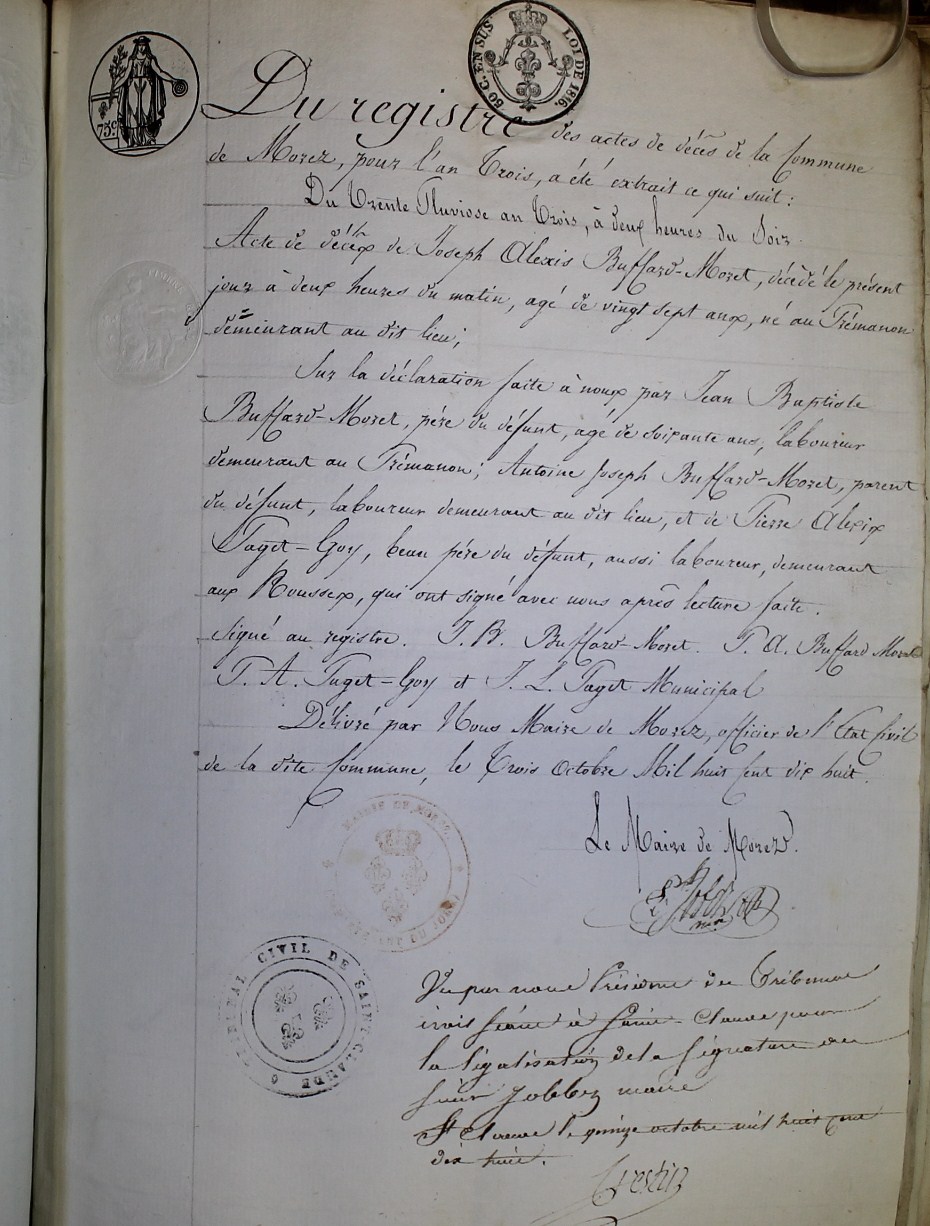 75c.
80 C. EN SUS LOI DE 1816.
Du registre des actes de décès de la Commune
de Morez, pour l'an Trois, a été extrait ce qui suit :
Du Trente Pluviose an Trois, à deux heures du Soir.
Acte de décès de Joseph Alexis Buffard-Moret, décédé le présent
jour à deux heures du matin, agé de vingt sept ans, né au Trémanon
demeurant au dit lieu ;
Sur la déclaration faite à nous par Jean Baptiste
Buffard-Moret, père du défunt, agé de soixante ans, laboureur
demeurant au Trémanon ; Antoine Joseph Buffard-Moret, parent
du défunt, laboureur demeurant au dit lieu, et de Pierre Alexis
Paget-Goy, beau père du défunt, aussi laboureur, demeurant
aux Rousses, qui ont signé avec nous après lecture faite.
Signé au registre. J. B. Buffard-Moret. J. A. Buffard Moret
P. A. Paget-Goy et J. L. Paget Municipal
Délivré par Nous Maire de Morez, officier de l'Etat Civil
de la dite Commune, le Trois Octobre Mil huit Cent dix huit.
MAIRIE DE MOREZ
Le Maire de Morez.
TRIBUNAL CIVIL DE SAINT-CLAUDE
Vu par nous Président du Tribunal
civil séant à Saint-Claude pour
la légalisation de la signature du
sieur Jobbez maire
St Claude le quinze octobre mil huit cent
dix huit.
Crestin